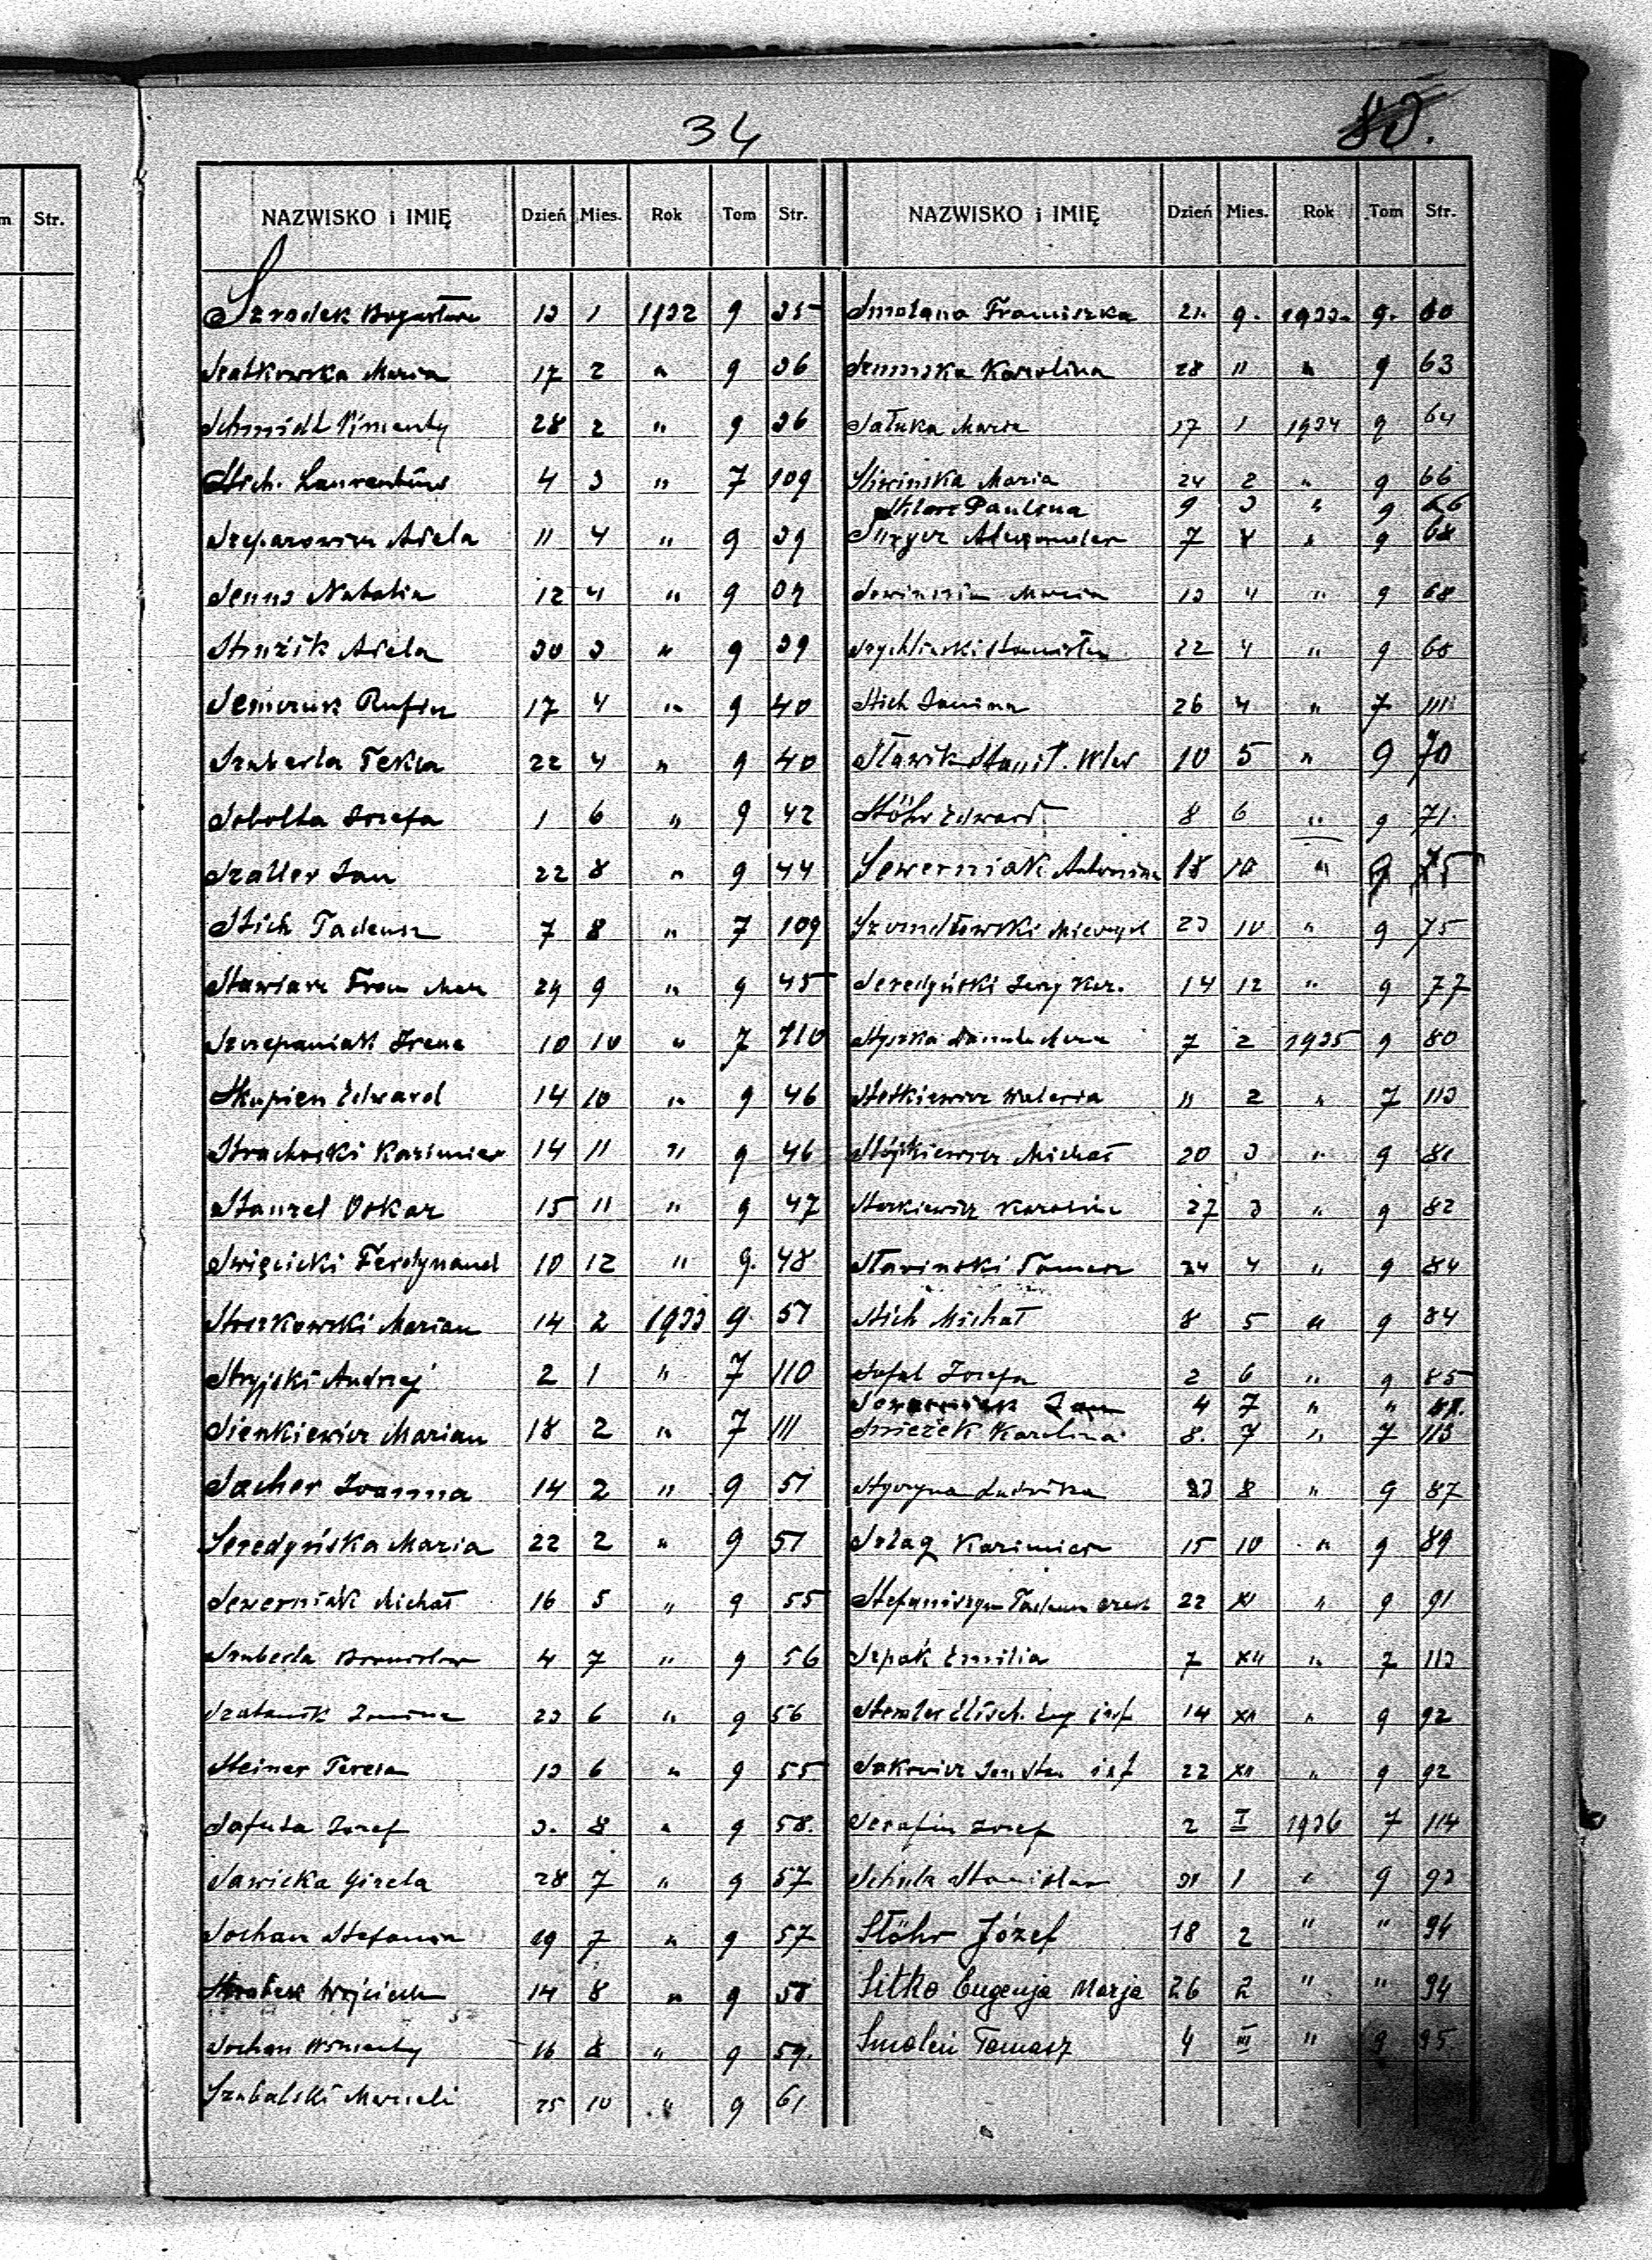 34
80.
m Str.
NAZWISKO i IMIĘ Dzień Mies. Rok Tom Str.
Szrodek 13 1 1932 9 35
Szatkowska Maria 17 2 " 9 36
Schmidt Wincenty 28 2 " 9 36
Stich Laurentius 4 3 " 7 109
Szeparowicz Adela 11 4 " 9 39
Natalia 12 4 " 9 39
Struzik Adela 30 3 " 9 39
Semczuk Rufin 17 4 " 9 40
Szuberla Tekla 22 4 " 9 40
Sobolta Józefa 1 6 " 9 42
Szaller Jan 22 8 " 9 44
Stich Tadeusz 7 8 " 7 109
Stawiarz Fran 29 9 " 9 45
Szczepaniak Irena 10 10 " 7 110
Skupien Edward 14 10 " 9 46
Strachocki Kazimierz 14 11 " 9 46
Stanzel Oskar 15 11 " 9 47
Swięcicki Ferdynand 10 12 " 9. 48
Stoszkowski Marian 14 2 1933 9 51
Stryjski Andrzej 2 1 " 7 110
Sienkiewicz Marian 18 2 " 7 111
Sacher Joanna 14 2 " 9 51
Seredyńska Maria 22 2 " 9 51
Sewerniak Michał 16 5 " 9 55
Szuberla Bronisław 4 7 " 9 56
Janina 23 6 " 9 56
Steiner Teresa 13 6 " 9 55
Safuta Józef 3. 8 " 9 58.
Sawicka Gizela 28 7 " 9 57
Sochan Stefania 19 7 " 9 57
Wojciech 14 8 " 9 58
Sochan Wincenty 16 8 " 9 59.
Szabalski Marceli 25 10 " 9 61
NAZWISKO i IMIĘ Dzień Mies. Rok Tom Str.
Smolana Franciszka 21. 9. 1933. 9. 60
Karolina 28 11 " 9 63
Sałuka Maria 17 1 1934 9 64
Sliwinska Maria 24 2 " 9 66
Paulina 9 3 " 9 66
7 4 " 9 68
Maria 13 4 " 9 68
Stanisław 22 4 " 9 68
Stich Janina 26 4 " 7 111
Sławik Stanił. Wler 10 5 " 9 70
Stöhr Edward 8 6 " 9 71.
Sewerniak Antonina 18 10 " 9 75
Szandłowski Mieczysł 23 10 " 9 75
Seredyński Jerzy Kaz. 14 12 " 9 77
7 2 1935 9 80
Waleria 11 2 " 7 113
Stójkiewicz Michał 20 3 " 9 81
Karolina 27 3 " 9 82
Sławinski Tomasz 24 4 " 9 84
Stich Michał 8 5 " 9 84
Józefa 2 6 " 9 85
Sewerniak Jan 4 7 " "
Śnieżek Karolina 8. 7 " 7 113
Ludwika 23 8 " 9 87
Kazimierz 15 10 " 9 89
Stefaniszyn 22 XI " 9 91
Szpak Emilia 7 XII " 7 113
14 XII " 9 92
22 XII " 9 92
Serafin Józef 2 I 1936 7 114
Stanisław 31 1 " 9 93
Stöhr Józef 18 2 " " 94
Sitko Eugenja Marja 26 2 " " 94
Smoleń Tomasz 4 III " 9 95